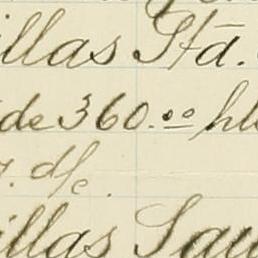 illas Sta.
de 360.00 hl
7. d/c.
illas Sau